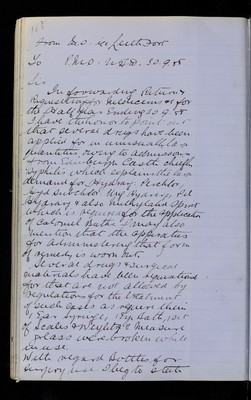 From M.O. i/c Leith Fort
To P.M.O. N.B.D. 30.9.98
Sir
In forwarding Return &
Requisition for Medicines &c for
the half year Ending 30.9.98
I have the honor to point out
that several drugs have been
applied for in unusually large
quantities owing to admissions
from Edinburgh Castle chiefly
Syphilis which explains the
demand for Hydrarg. Perchlor,
Hyd Subchlor Ung Hydrarg Pil
Hydrarg & also Methylated Spirit
which is required for the
Calomel Baths. I may also
mention that the apparatus
for administering that form
of remedy is worn out.
Several drugs & surgical
materials have been
for that are not allowed by
regulations for the treatment
of such cases as require them
Ear Syringe, Hip bath, 1 set
of Scales & Weights & Measure
glass were broken while
in use.
With regard Bottles for
surgery use I beg to state